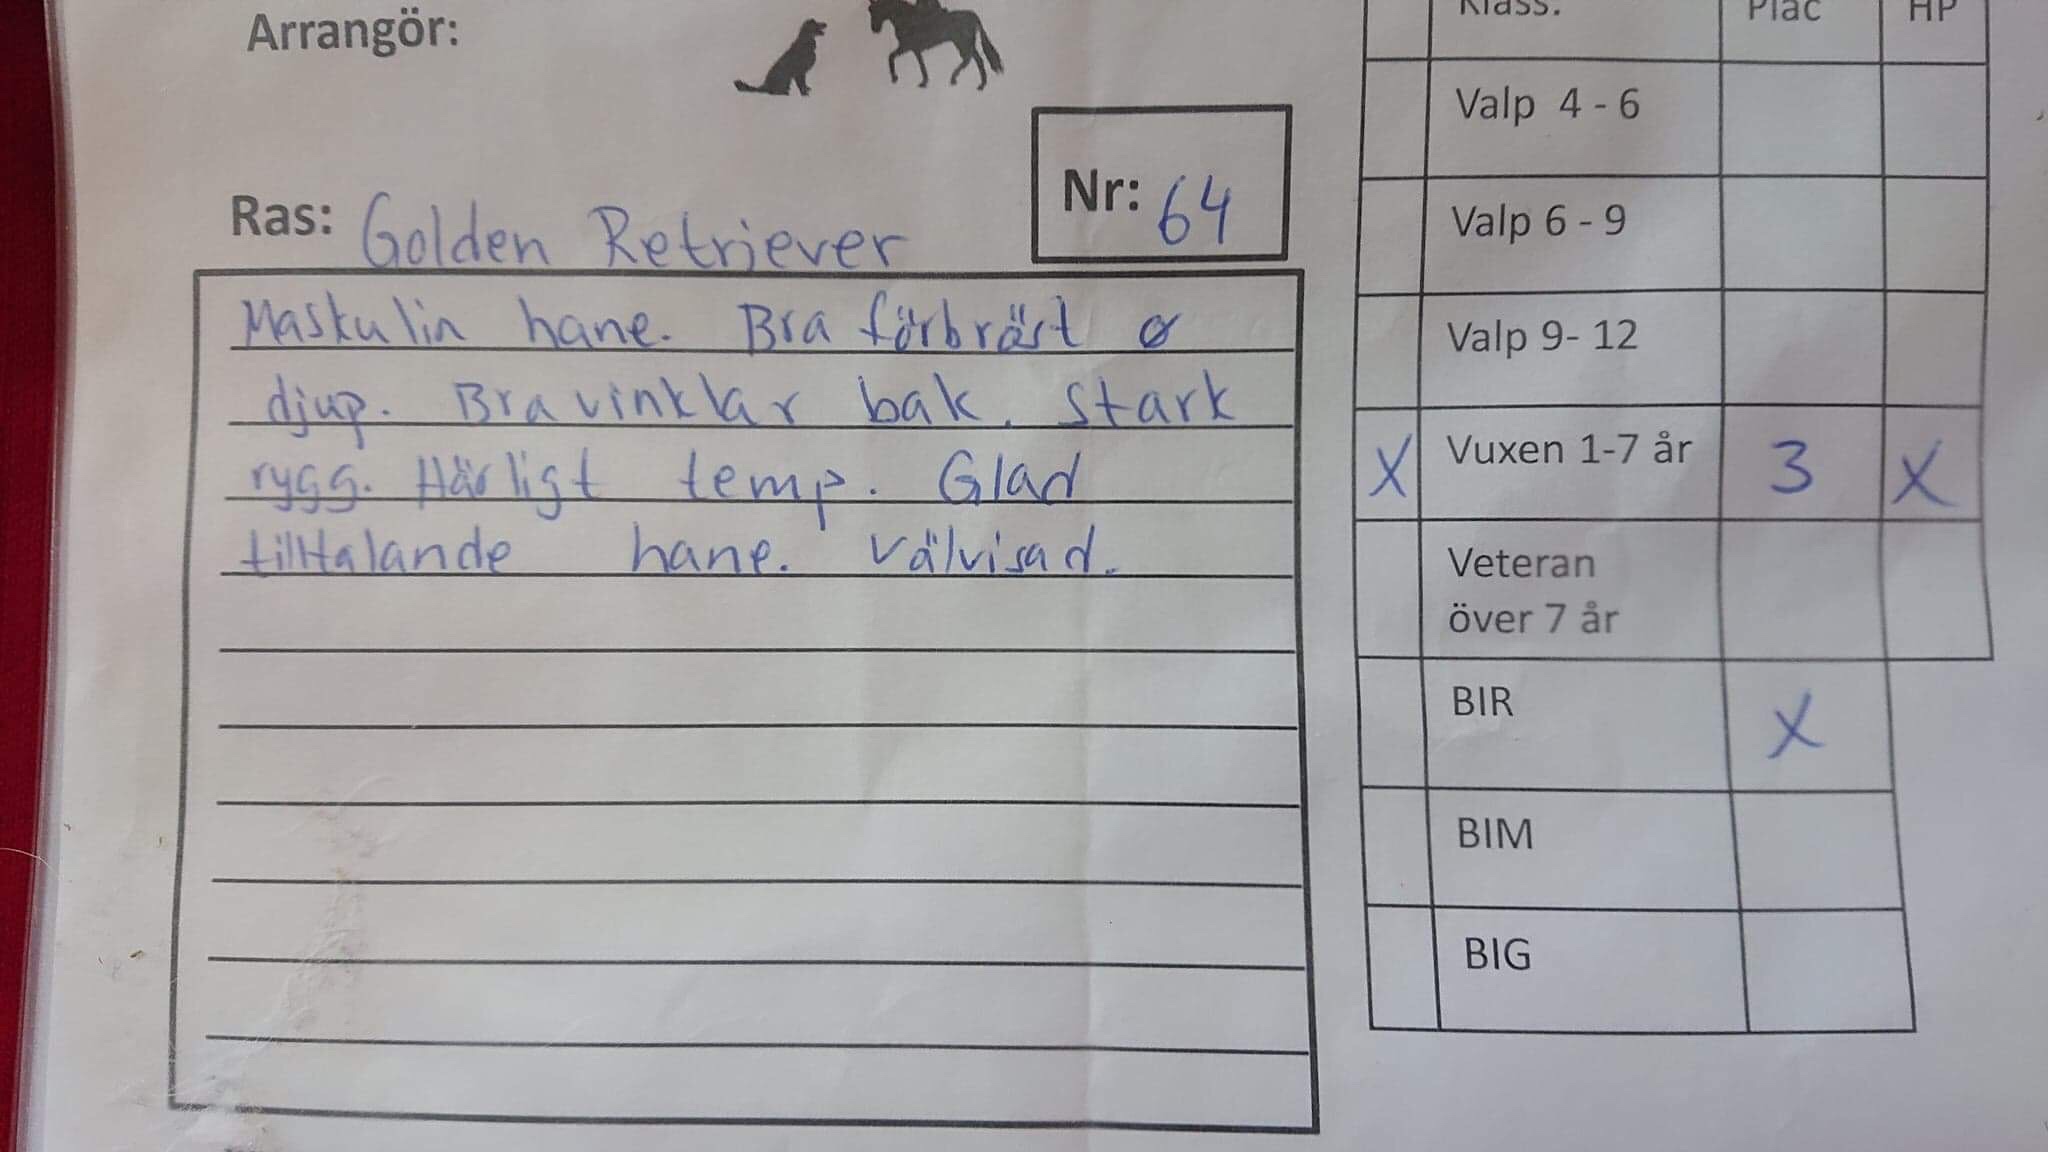 Arrangör:
Ras: Golden Retriever
Nr: 64
Maskulin hane. Bra förbröst o
djup. Bra vinklar bak. Stark
rygg. Härligt temp. Glad
tilltalande hane. Välvisad.
Klass: Plac HP
Valp 4 - 6
Valp 6 - 9
Valp 9- 12
X Vuxen 1-7 år 3 X
Veteran
över 7 år
BIR X
BIM
BIG